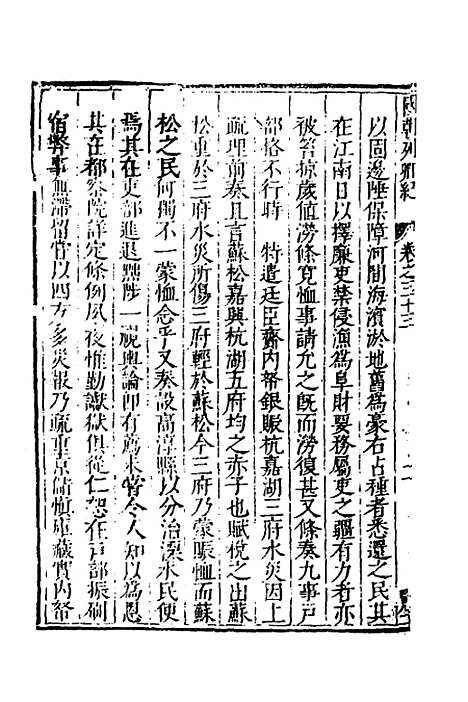 國朝列卿紀 卷之三十三
以固邊陲保障河間海濱淤地舊爲豪右占種者悉還之民其
在江南日以擇廉吏禁侵漁爲阜財要務屬吏之疆有力者亦
被笞掠歲値澇條寬恤事請允之既而澇復甚又條奏九事戸
部格不行時 特遣廷臣齎内帑銀賑杭嘉湖三府水災因上
疏理前奏且言蘇松嘉興杭湖五府均之赤子也賦稅之出蘇
松重於三府水災所傷三府輕於蘇松今三府乃蒙賑恤而蘇
松之民何獨不一蒙恤念乎又奏設高淳縣以分治溧水民便
焉其在吏部進退黜陟一視輿論卽有薦未嘗令人知以爲恩
其在都察院詳定條例夙夜惟勤讞獄俱從仁恕在戸部振刷
宿弊事無滯留嘗以四方多災報乃疏重京儲愼庫藏實内帑